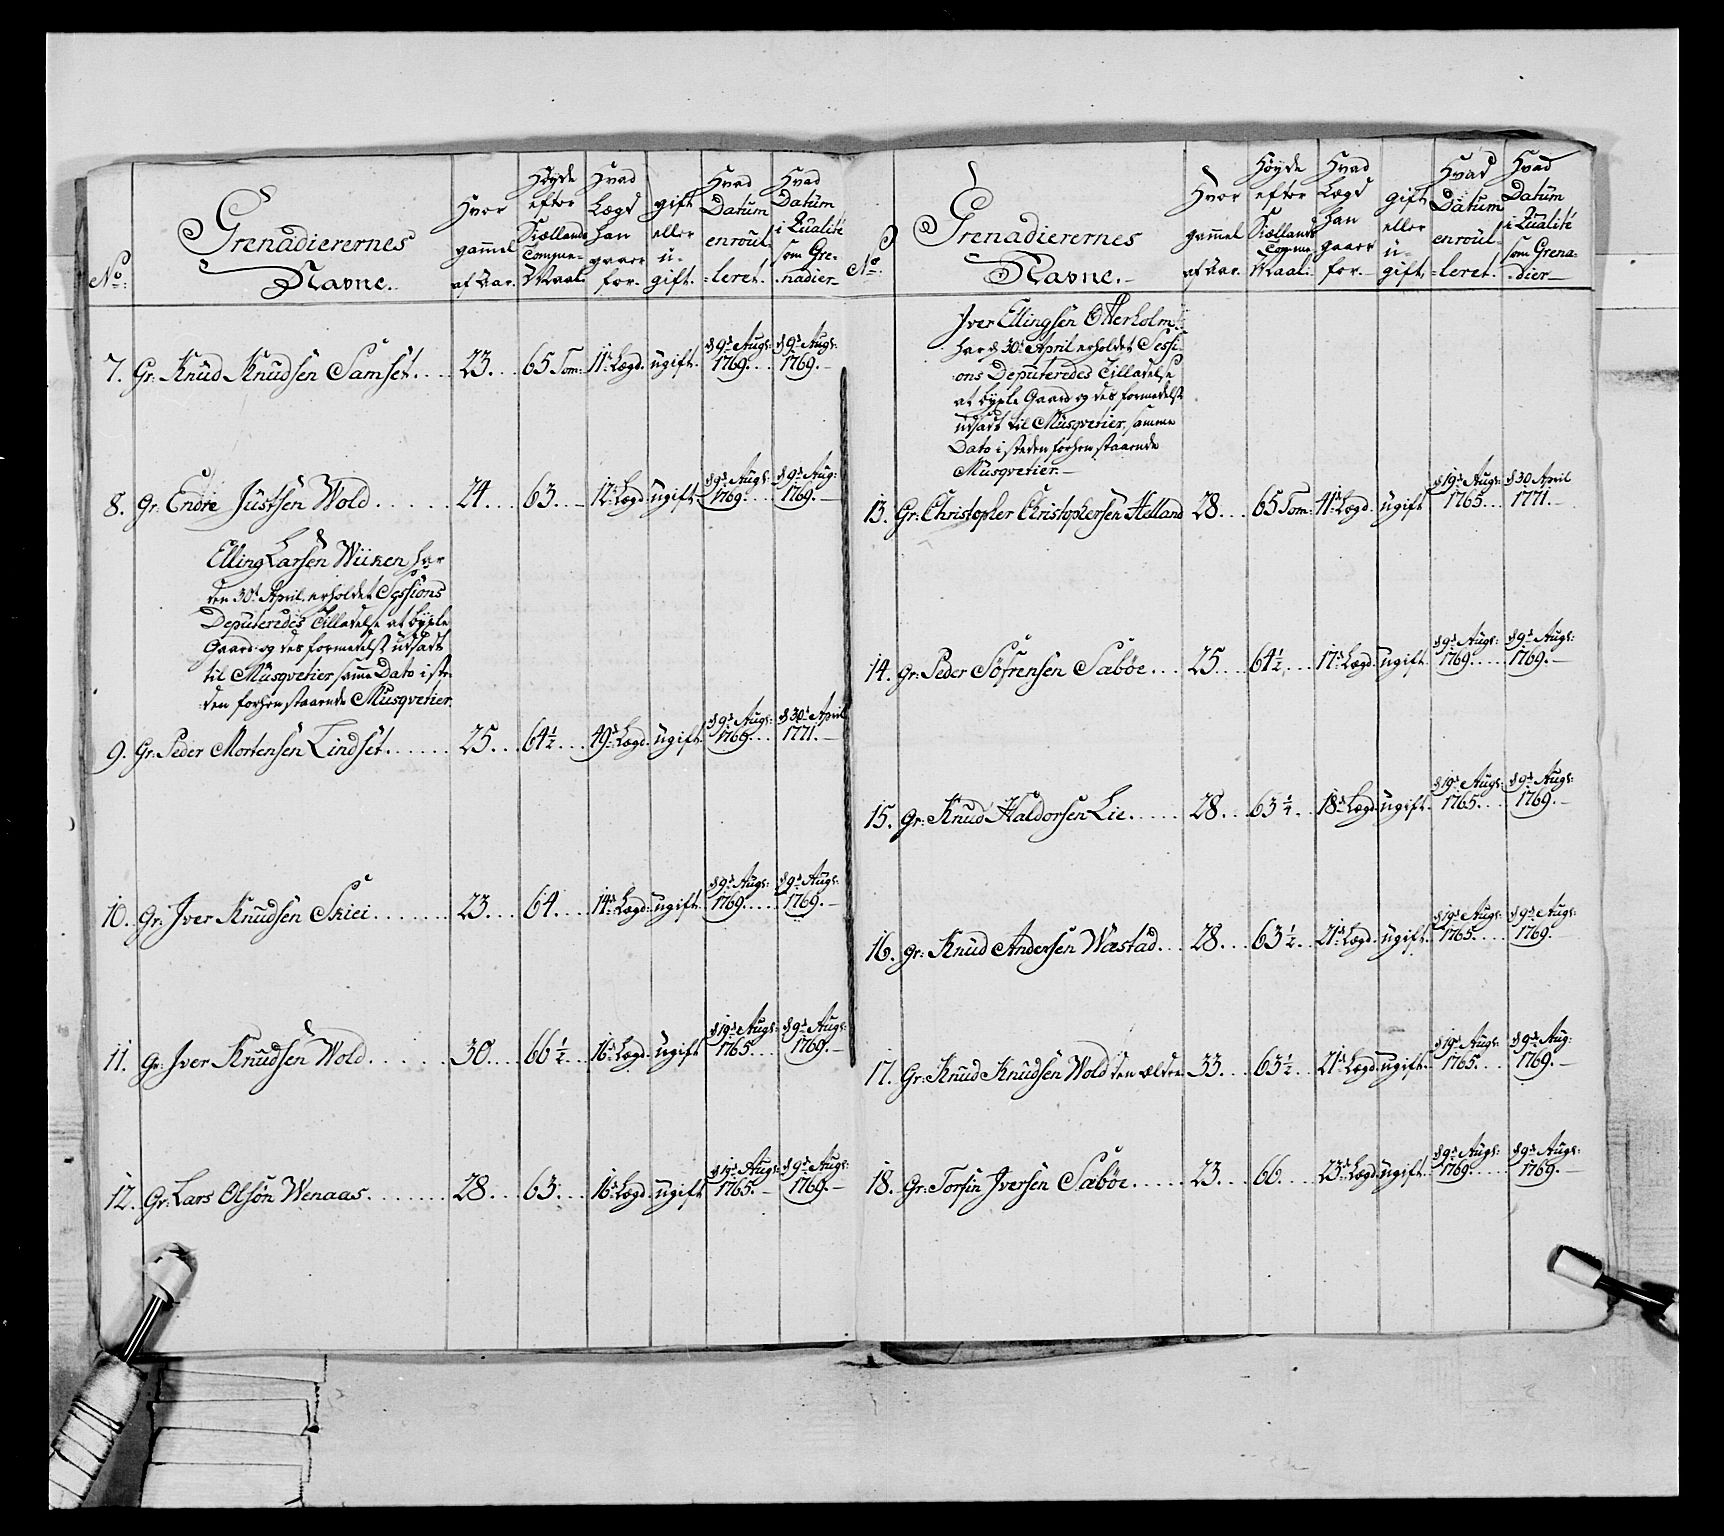 No: Grenadierernes Navne. Hvor gammel af Aar. Høyde efter Siællands Tomme-Maal. Hvad Lægd han gaaer for. gift eller u-gift. Hvad Datum enroul-leret. Hvad Datum i Qualité som Gre-nadier
7. Gr: Knud Knudsen Samset. 23. 65 Tom: 11te Lægd. ugift. d 9de Augs: 1769. d 9de Augs: 1769.
8. Gr: Endre Justsen Wold. 24. 63. 12te Lægd ugift d 9de Augs: 1769. d 9de Aug: 1769.
Elling Larsen Wiiken har
den 30te April erholdet Sessions
Deputeredes Tilladelse at byxle
Gaard og des formedelst udsadt
til Musqvetier samme Dato i ste-
den forhen staaende Musqvetier.
9. Gr: Peder Mortensen Lindset. 25. 64½. 49de Lægd. ugift. d 9de Augs: 1769. d 30te April 1771.
10. Gr: Iver Knudsen Skiei. 23. 64. 14de Lægd: ugift. d 9de Augs: 1769. d 9de Augs: 1769.
11. Gr: Iver Knudsen Wold. 30. 66½. 16de Lægd. ugift d 19de Augs: 1765. d 9de Augs: 1769.
12. Gr: Lars Olsøn Wenaas. 28. 63. 16de Lægd ugift d 19de Augs: 1765. d 9de Augs: 1769.
No: Grenadierernes Navne. Hvor gammel af Aar. Høyde efter Siællands Tomme Maal: Hvad Lægd han gaaer for. gift eller u-gift. Hvad Datum enroul-leret. Hvad Datum i Qualité som Grena-dier
Iver Ellingsen Otterholm
har d 30te April erholdet Sessi-
ons Deputeredes Tilladelse
at byxle Gaard og des formedelst
udsadt til Musqvetier samme
Dato i steden forhen staaende
Musqvetier.
13. Gr: Christopher Christophersen Helland 28. 65 Tom: 41de Lægd. ugift d 19de Augs: 1765. d 30 April 1771.
14. Gr: Peder Søfrensen Sæbøe. 25. 64½. 17de Lægd. ugift. d 9de Augs: 1769. d 9de Augs: 1769.
15. Gr: Knud Haldorsen Lie. 28. 63¼. 18de Lægd ugift. d 19de Augs: 1765. d 9de Augs: 1769.
16. Gr: Knud Andersen Wæstad. 28. 63½. 21de Lægd. ugift. d 19de Augs: 1765. d 9de Augs: 1769.
17. Gr: Knud Knudsen Wold den ældre 33. 63½. 21de Lægd ugift. d 19de Augs: 1765. d 9de Aug: 1769.
18. Gr: Torsin Iversen Sæbøe. 23. 66. 23de Lægd ugift. d 9de Augs: 1769. d 9de Augs: 1769.